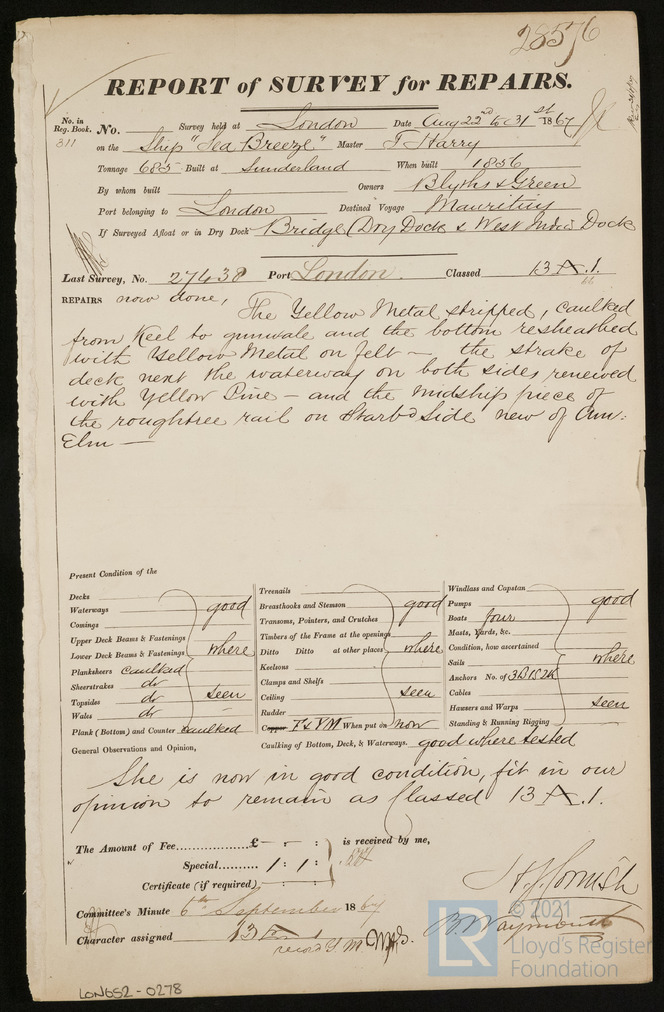 28576
REPORT of SURVEY for REPAIRS.
No. in Reg. Book. No. Survey held at London Date Aug 22nd to 31st 1867
311 on the Ship "Sea Breeze" Master T Harry
Tonnage 685 Built at Sunderland When built 1856
By whom built Owners Blyths & Green
Port belonging to London Destined Voyage Mauritius
If Surveyed Afloat or in Dry Dock Bridge Dry Dock & West India Dock
Last Survey, No. 27438 Port London Classed 13 A.1.
REPAIRS now done, The Yellow Metal stripped, caulked
from Keel to gunwale and the bottom resheathed
with Yellow Metal on felt — the strake of
deck next the waterway on both sides renewed
with Yellow Pine — and the midship piece of
the roughtree rail on Starbd Side new of Am:
Elm —
Present Condition of the
Decks
Waterways
Comings
Upper Deck Beams & Fastenings
Lower Deck Beams & Fastenings
good where seen
Planksheers caulked
Sheerstrakes do
Topsides do
Wales do
Plank (Bottom) and Counter caulked
Treenails
Breasthooks and Stemson
Transoms, Pointers, and Crutches
Timbers of the Frame at the openings
Ditto Ditto at other places
Keelsons
Clamps and Shelfs
Ceiling
Rudder
good where seen
Copper F & YM When put on now
Caulking of Bottom, Deck, & Waterways. good where tested
Windlass and Capstan
Pumps
Boats four
Masts, Yards, &c.
Condition, how ascertained
Sails
Anchors No. of 3B 1S 2K
Cables
Hawsers and Warps
Standing & Running Rigging
good where seen
General Observations and Opinion,
She is now in good condition, fit in our
opinion to remain as Classed 13 A.1.
The Amount of Fee £ - : - : is received by me,
Special 1 : 1 :
Certificate (if required) - : - :
H. J. Cornish
B. Waymouth
Committee's Minute 6th September 1867
Character assigned 13 A 1
LON652-0278
© 2021
LR
Lloyd's Register
Foundation